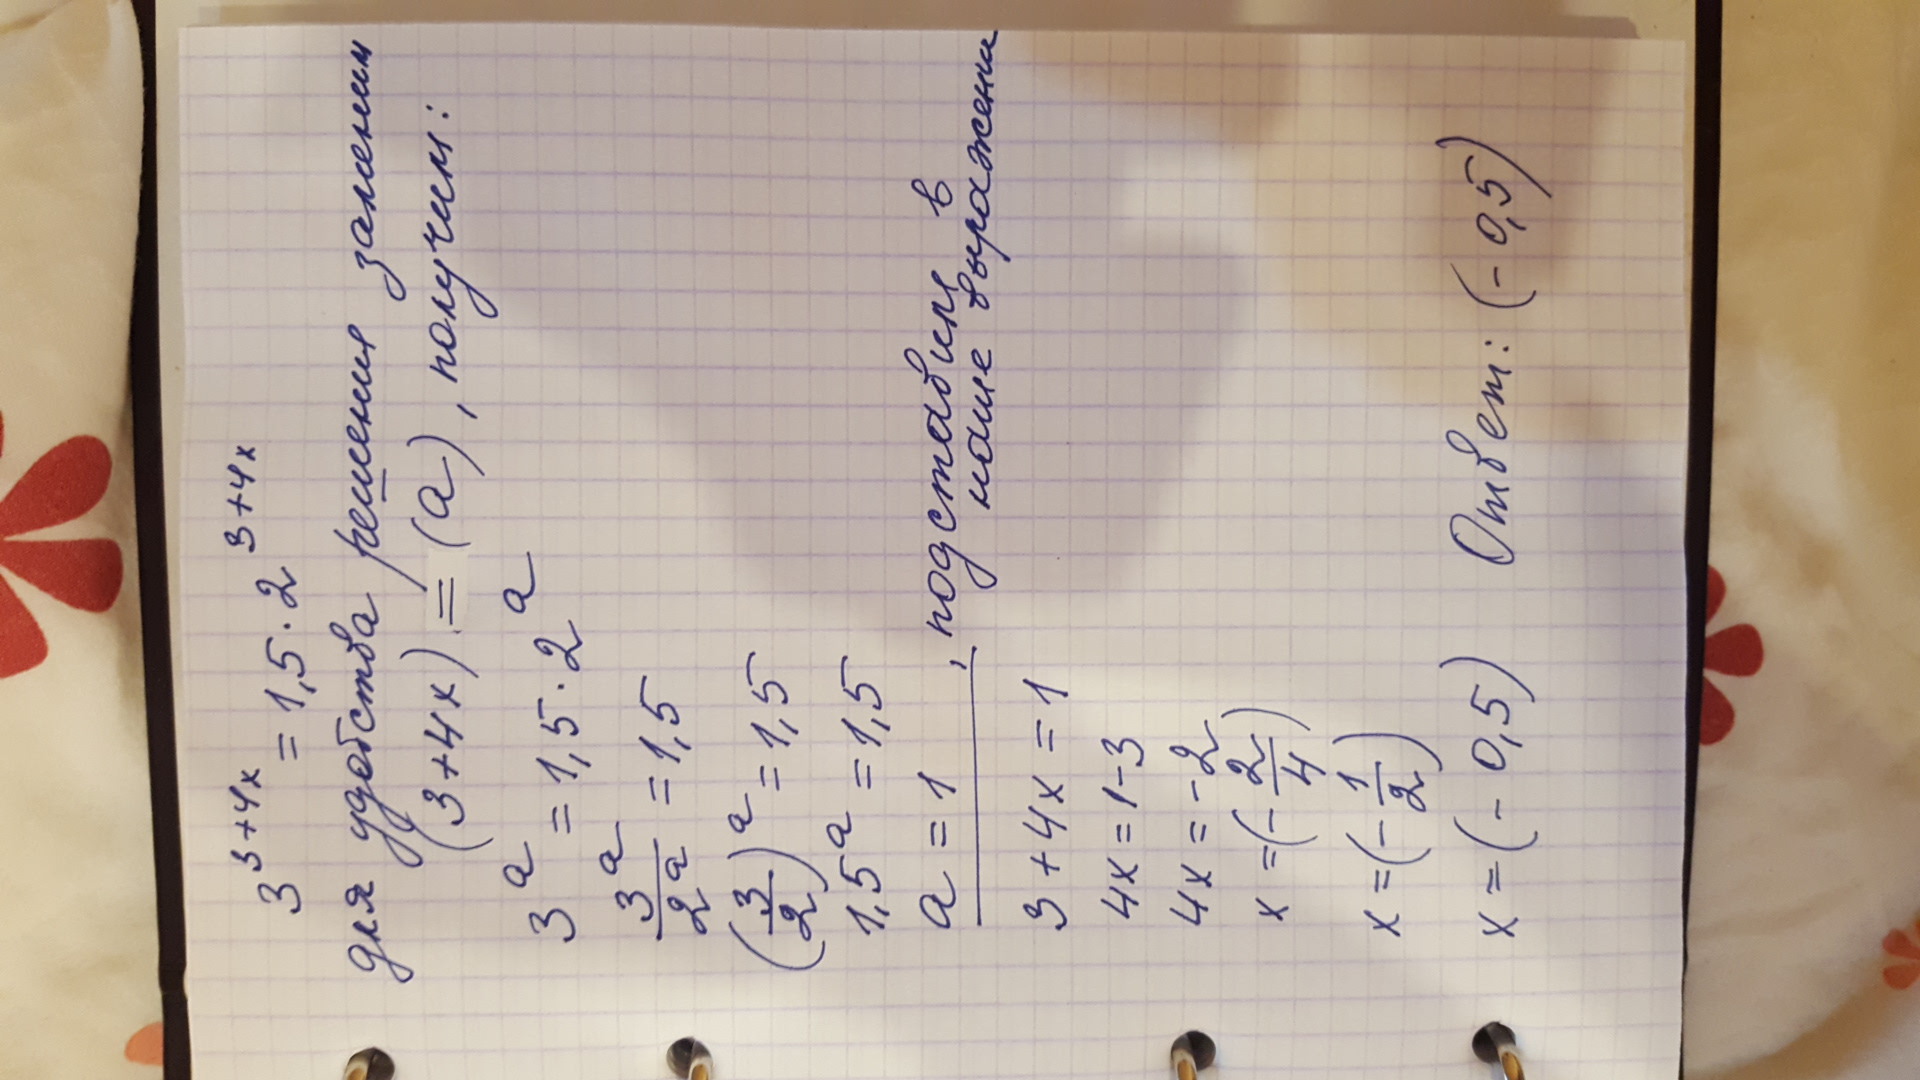 3^(3+4x) = 1,5 · 2^(3+4x)
для удобства решения заменим
(3+4x) = (a), получим:
3^a = 1,5 · 2^a
3^a/2^a = 1,5
(3/2)^a = 1,5
1,5^a = 1,5
a = 1, подставим в
наше выражени
3 + 4x = 1
4x = 1-3
4x = -2
x = (-2/4)
x = (-1/2)
x = (- 0,5) Ответ: (- 0,5)